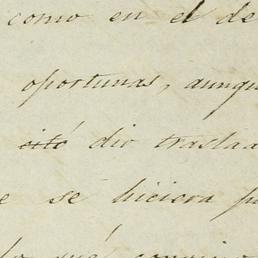 como en el de
oportunas, aunqu
citó dio trasla
e se hiciera p